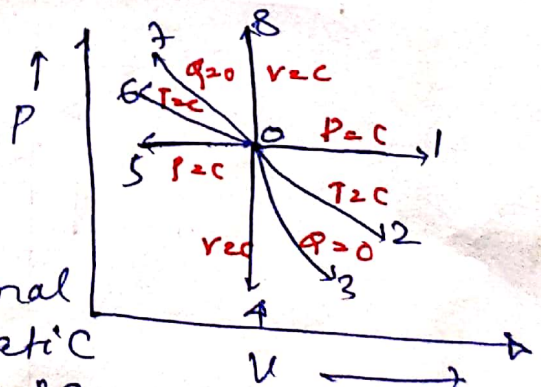 7
8
Q=0
V=C
6
T=C
P
0
P=C
1
5
P=C
T=C
2
V=C
Q=0
3
nal
4
atic
V